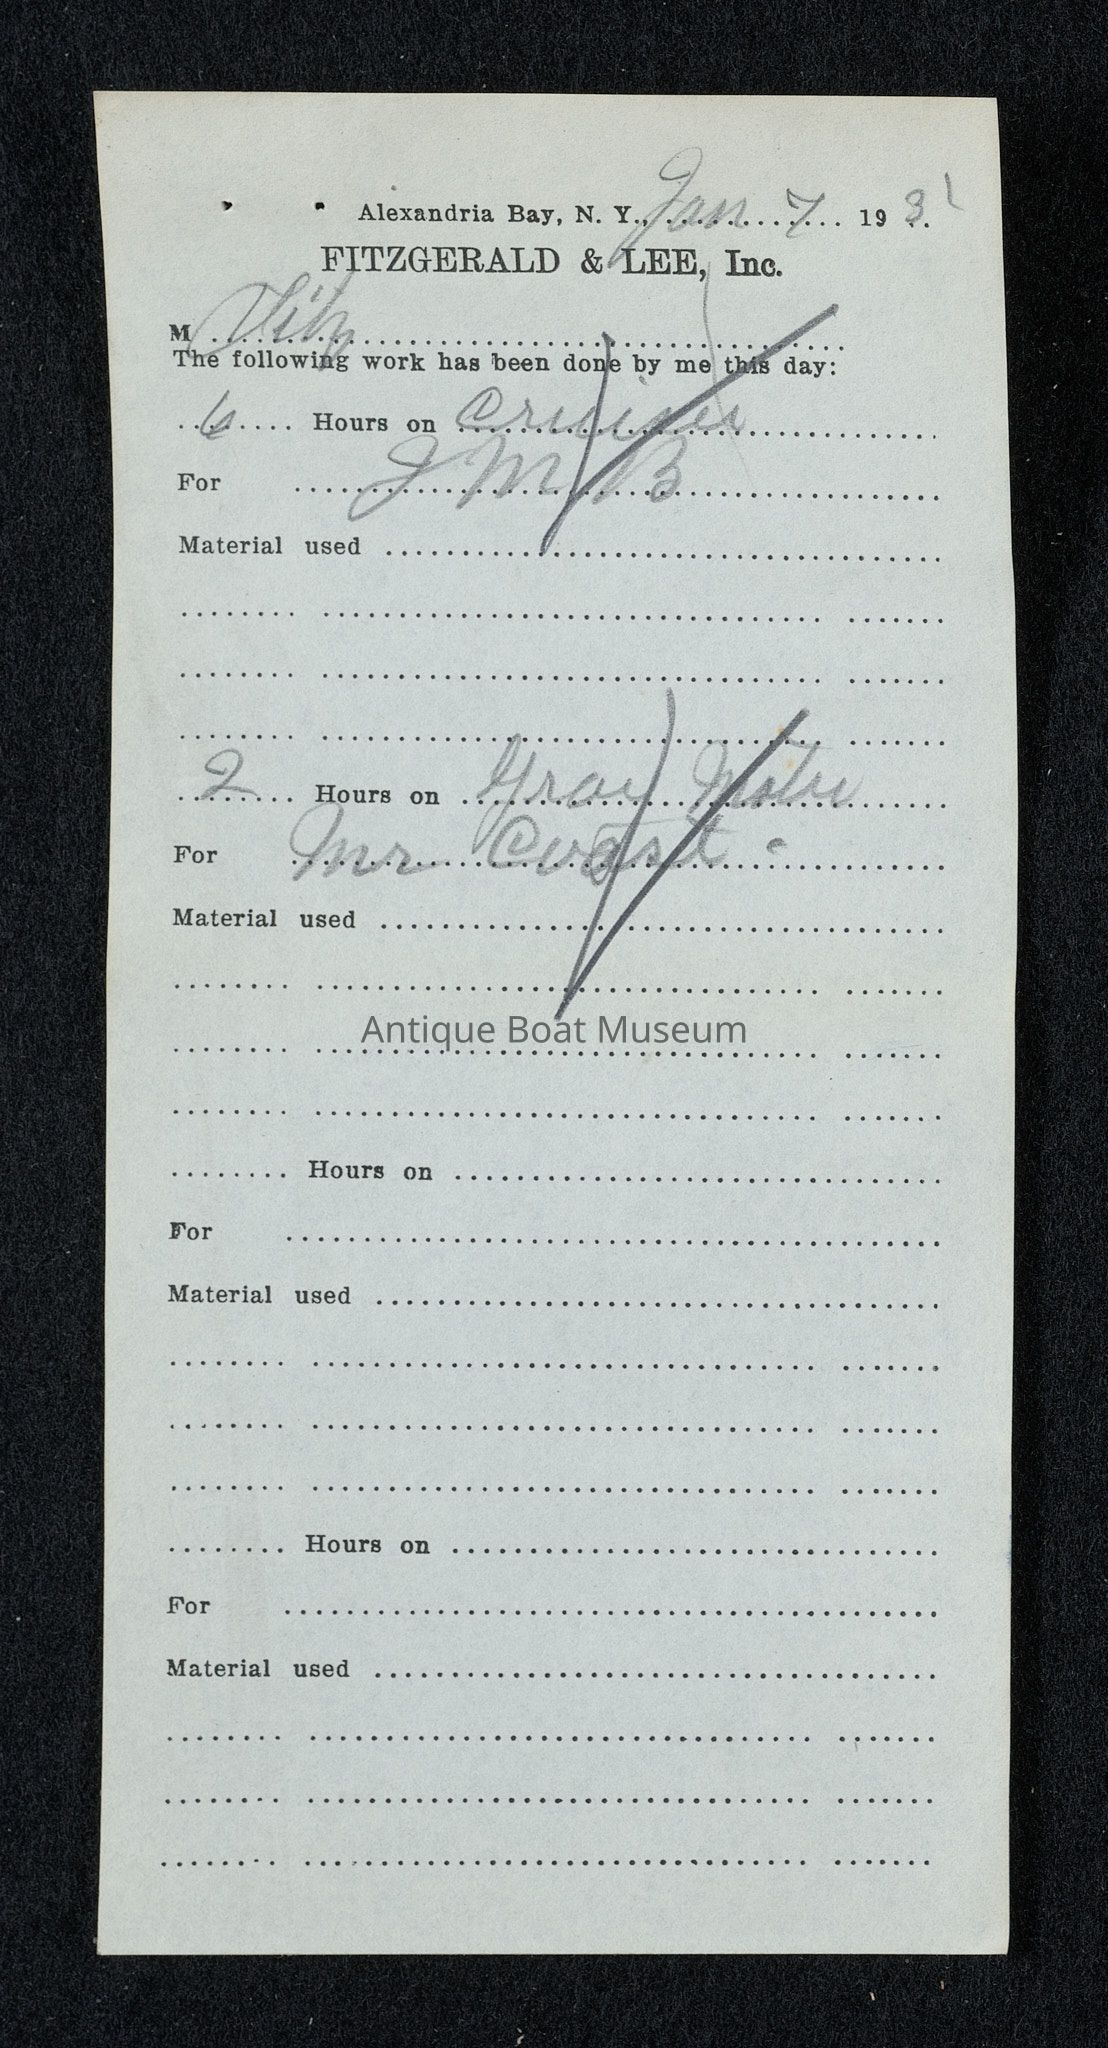 Alexandria Bay, N. Y., Jan 7 1931.
FITZGERALD & LEE, Inc.
M Fitz
The following work has been done by me this day:
6 Hours on Cruiser
For J M B
Material used
2 Hours on Gray Motor
For Mr
Material used
Antique Boat Museum
Hours on
For
Material used
Hours on
For
Material used